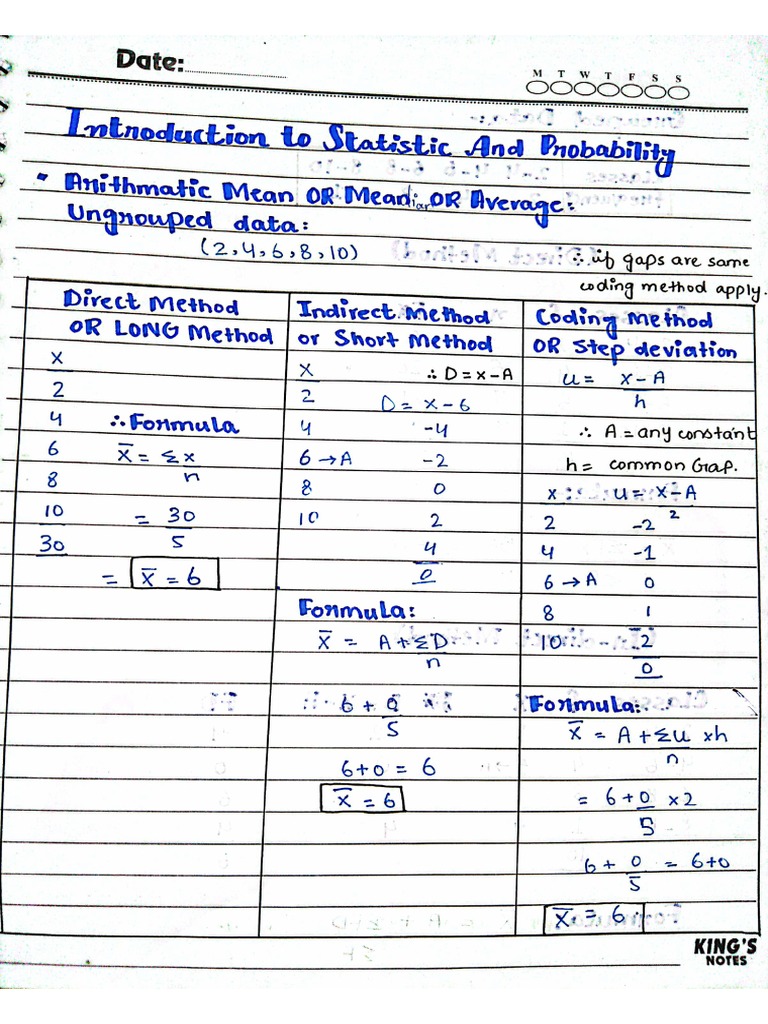 Date:
M T W T F S S
Introduction to Statistic And Probability
• Arithmatic Mean OR Meadian OR Average:
Ungrouped data:
(2,4,6,8,10)
∴ if gaps are same
coding method apply.
Direct Method
OR LONG Method
x
2
4 ∴ Formula
6 x̄ = Σx/n
8
10 = 30/5
30
= x̄ = 6
Indirect Method
or Short Method
x ∴ D = x - A
2 D = x - 6
4 -4
6 → A -2
8 0
10 2
4
0
Formula:
x̄ = A + ΣD/n
6 + 0/5
6 + 0 = 6
x̄ = 6
Coding Method
OR Step deviation
u = x - A/h
∴ A = any constant
h = common Gap.
x u = x - A/2
2 -2
4 -1
6 → A 0
8 1
10 2
0
Formula:
x̄ = A + Σu/n xh
= 6 + 0/5 x 2
6 + 0/5 = 6 + 0
x̄ = 6
KING'S
NOTES